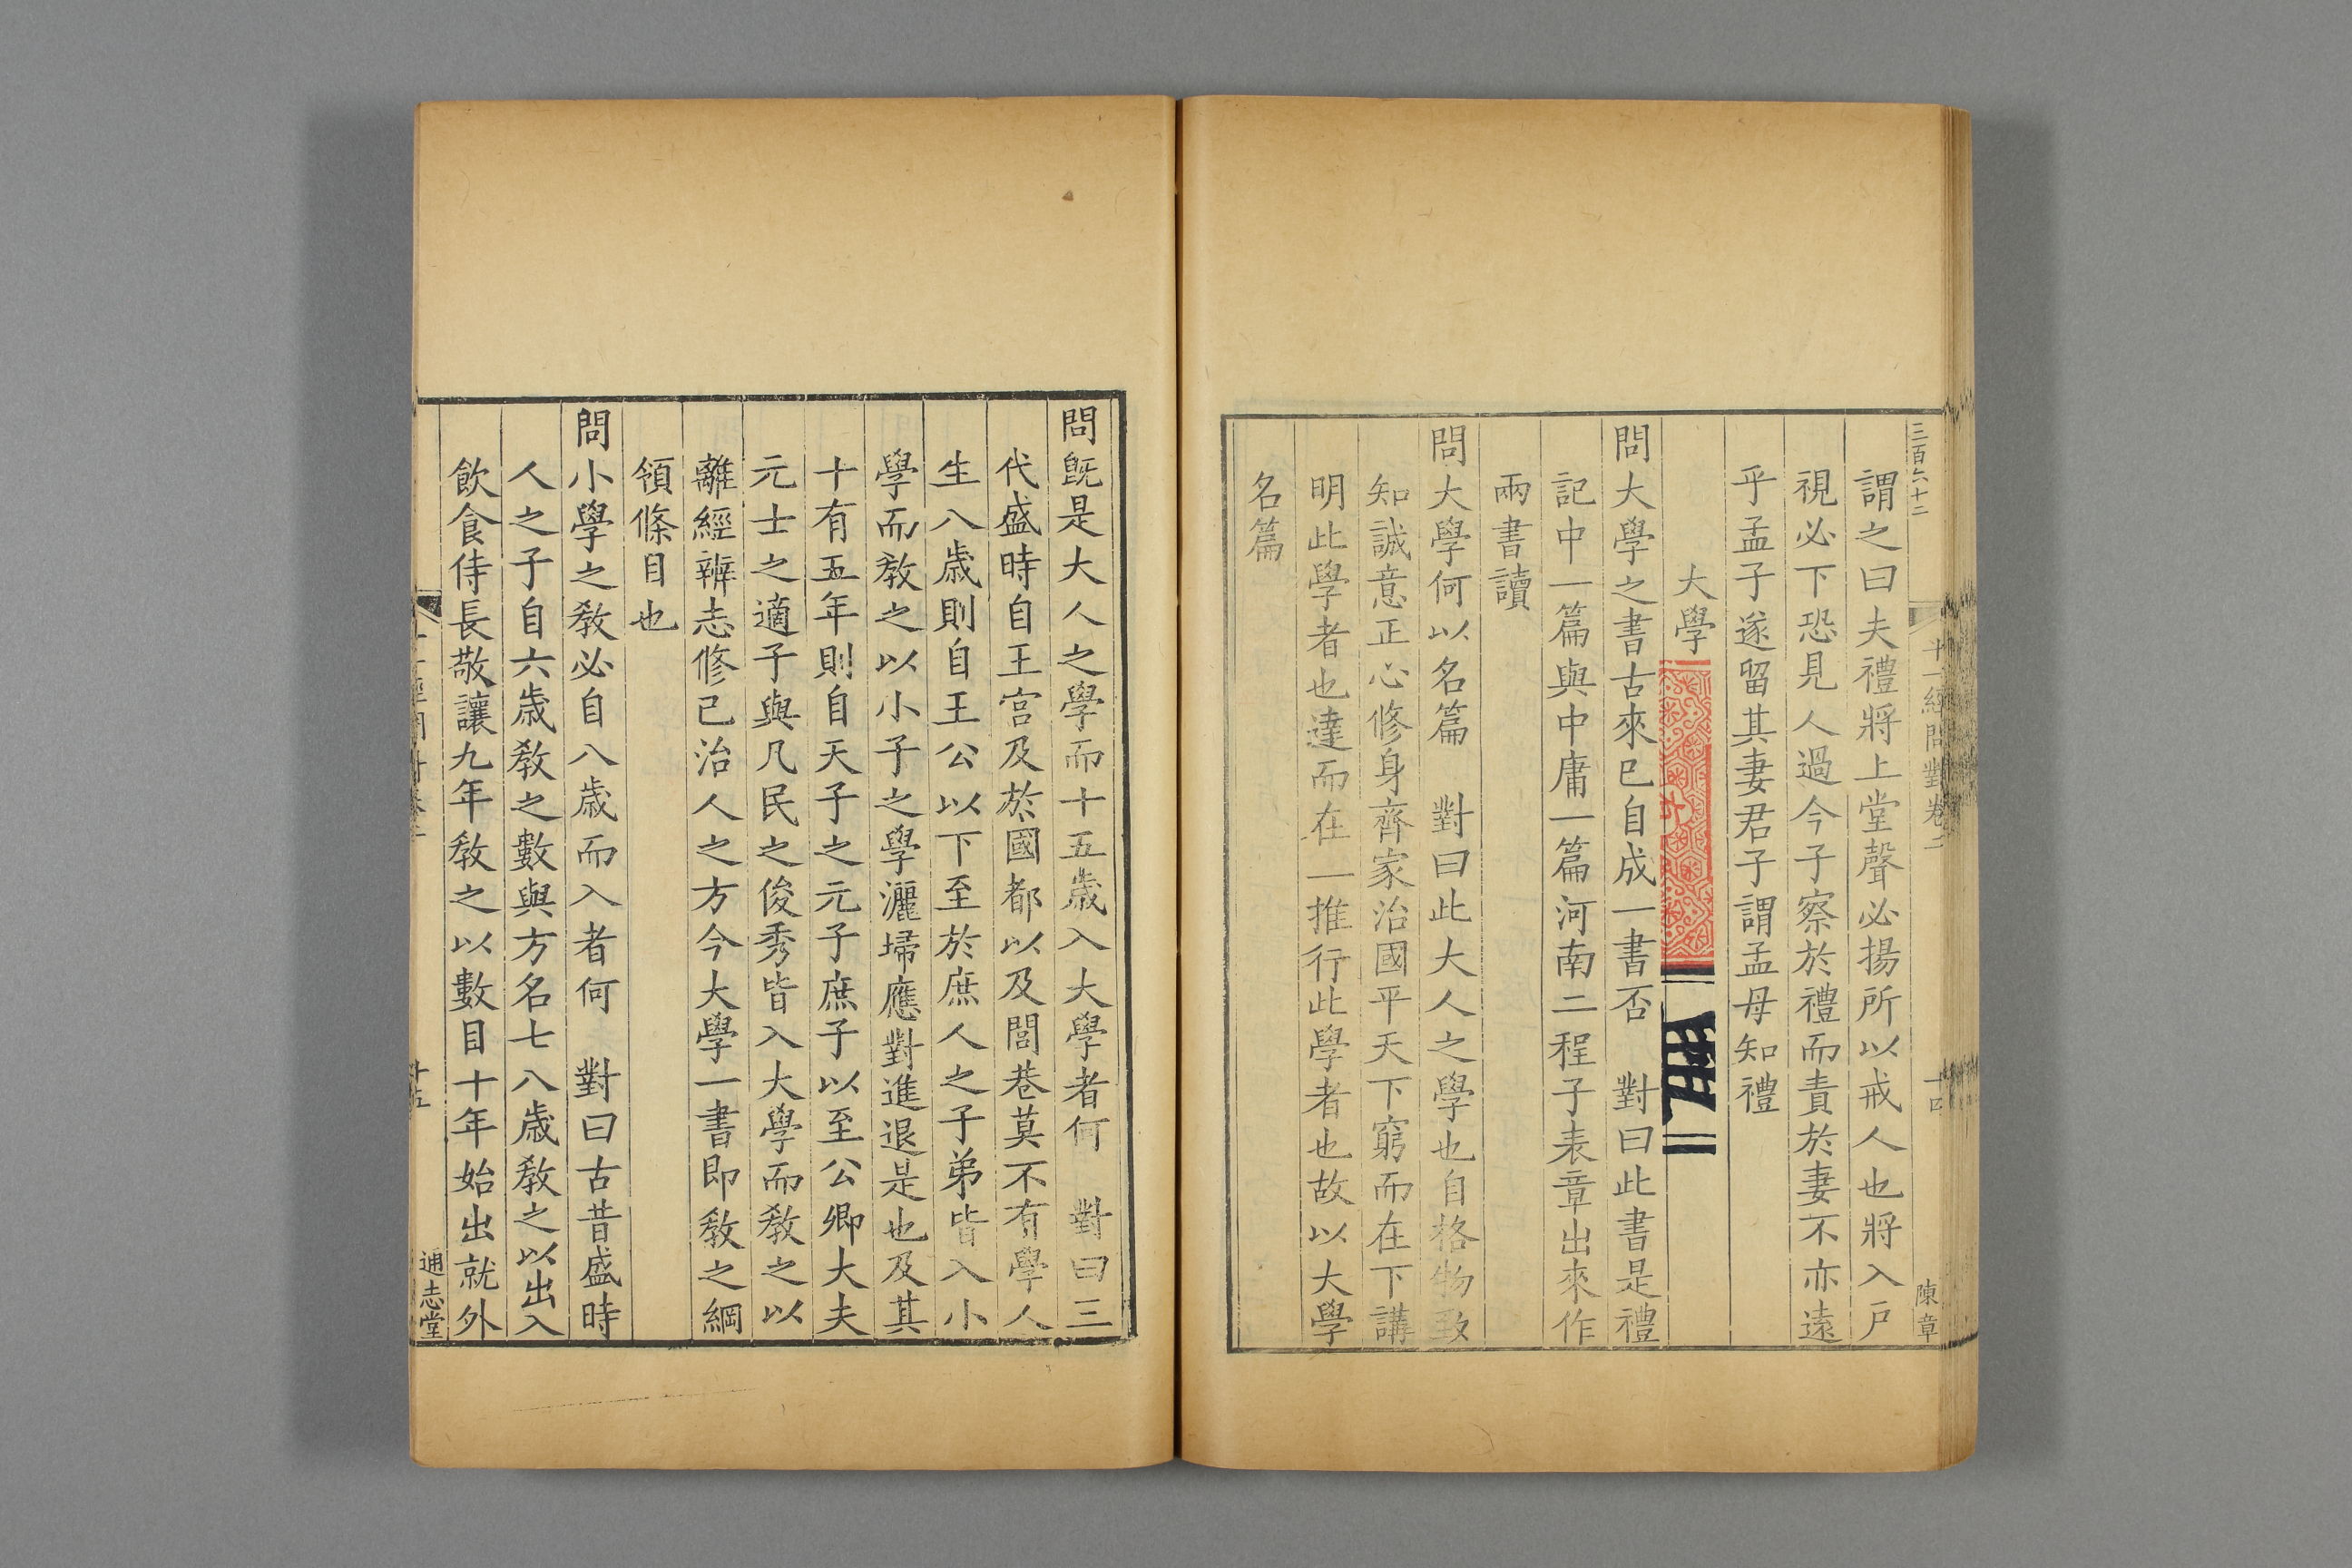 三百六十二
十一經問對卷二
十四
陳章
謂之曰夫禮將上堂聲必揚所以戒人也將入戸
視必下恐見人過今子察於禮而責於妻不亦遠
乎孟子遂留其妻君子謂孟母知禮
大學
問大學之書古來已自成一書否　對曰此書是禮
記中一篇與中庸一篇河南二程子表章出來作
兩書讀
問大學何以名篇　對曰此大人之學也自格物致
知誠意正心修身齊家治國平天下窮而在下講
明此學者也達而在一推行此學者也故以大學
名篇
問旣是大人之學而十五歲入大學者何　對曰三
代盛時自王宮及於國都以及閭巷莫不有學人
生八歲則自王公以下至於庶人之子弟皆入小
學而敎之以小子之學灑埽應對進退是也及其
十有五年則自天子之元子庶子以至公卿大夫
元士之適子與凡民之俊秀皆入大學而敎之以
離經辨志修已治人之方今大學一書即敎之綱
領條目也
問小學之敎必自八歲而入者何　對曰古昔盛時
人之子自六歲敎之數與方名七八歲敎之以出入
飲食侍長敬讓九年敎之以數目十年始出就外
十五
通志堂